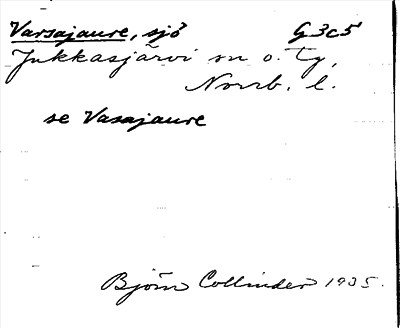 Varsajaure, sjö G3c5
Jukkasjärvi sn o. tg,
Norrb. l.
se Vasajaure
Björn Collinder 1935.